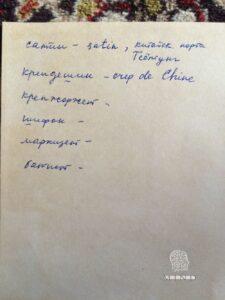 сатин - satin, китайск порта
Тсётунг
крепдешин - crep de Chine
крепжоржет -
шифон -
маркизет -
батист -